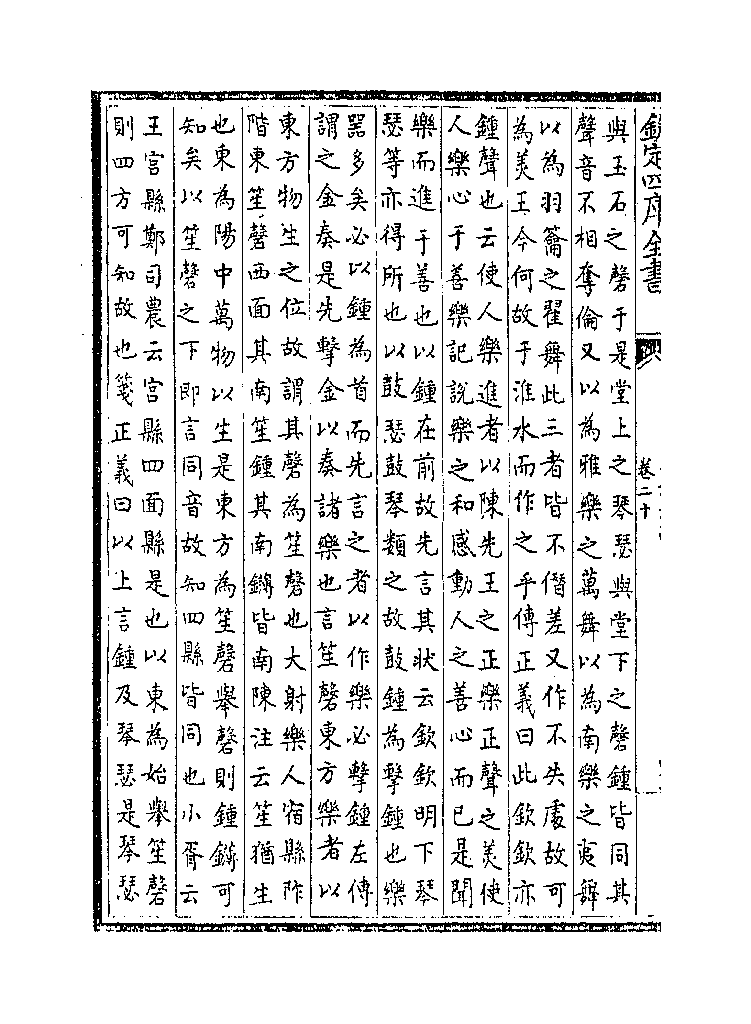 欽定四庫全書
卷二十
與玉石之磬于是堂上之琴瑟與堂下之磬鍾皆同其
聲音不相奪倫又以為雅樂之萬舞以為南樂之夷舞
以為羽籥之翟舞此三者皆不僭差又作不失處故可
為美王今何故于淮水而作之乎傳正義曰此欽欽亦
鍾聲也云使人樂進者以陳先王之正樂正聲之美使
人樂心于善樂記說樂之和感動人之善心而已是聞
樂而進于善也以鍾在前故先言其狀云欽欽明下琴
瑟等亦得所也以鼓瑟鼓琴類之故鼓鍾為擊鍾也樂
器多矣必以鍾為首而先言之者以作樂必擊鍾左傳
謂之金奏是先擊金以奏諸樂也言笙磬東方樂者以
東方物生之位故謂其磬為笙磬也大射樂人宿縣阼
階東笙磬西面其南笙鍾其南鑮皆南陳注云笙猶生
也東為陽中萬物以生是東方為笙磬舉磬則鍾鑮可
知矣以笙磬之下即言同音故知四縣皆同也小胥云
王宮縣鄭司農云宮縣四面縣是也以東為始舉笙磬
則四方可知故也箋正義曰以上言鍾及琴瑟是琴瑟